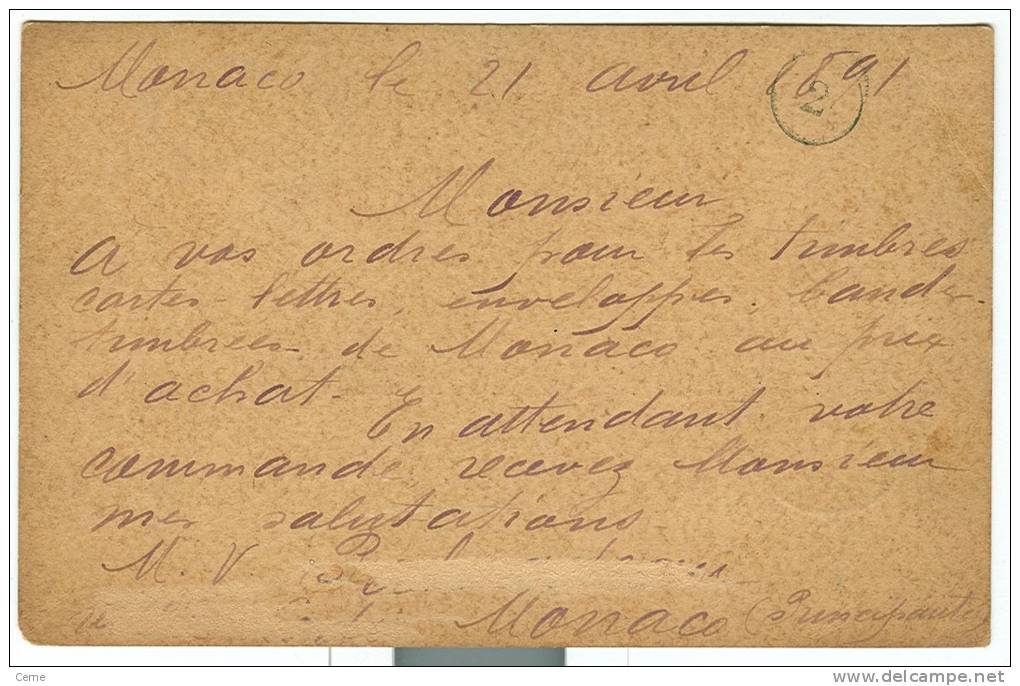 Monaco le 21 avril 1891
2
Monsieur
A vos ordres pour les timbres
cartes-lettres, enveloppes, bandes
timbrées de Monaco au prix
d'achat-
En attendant votre
commande, recevez Monsieur
mes salutations
M. V.
Monaco (Principauté)
Cerne
www.delcampe.net